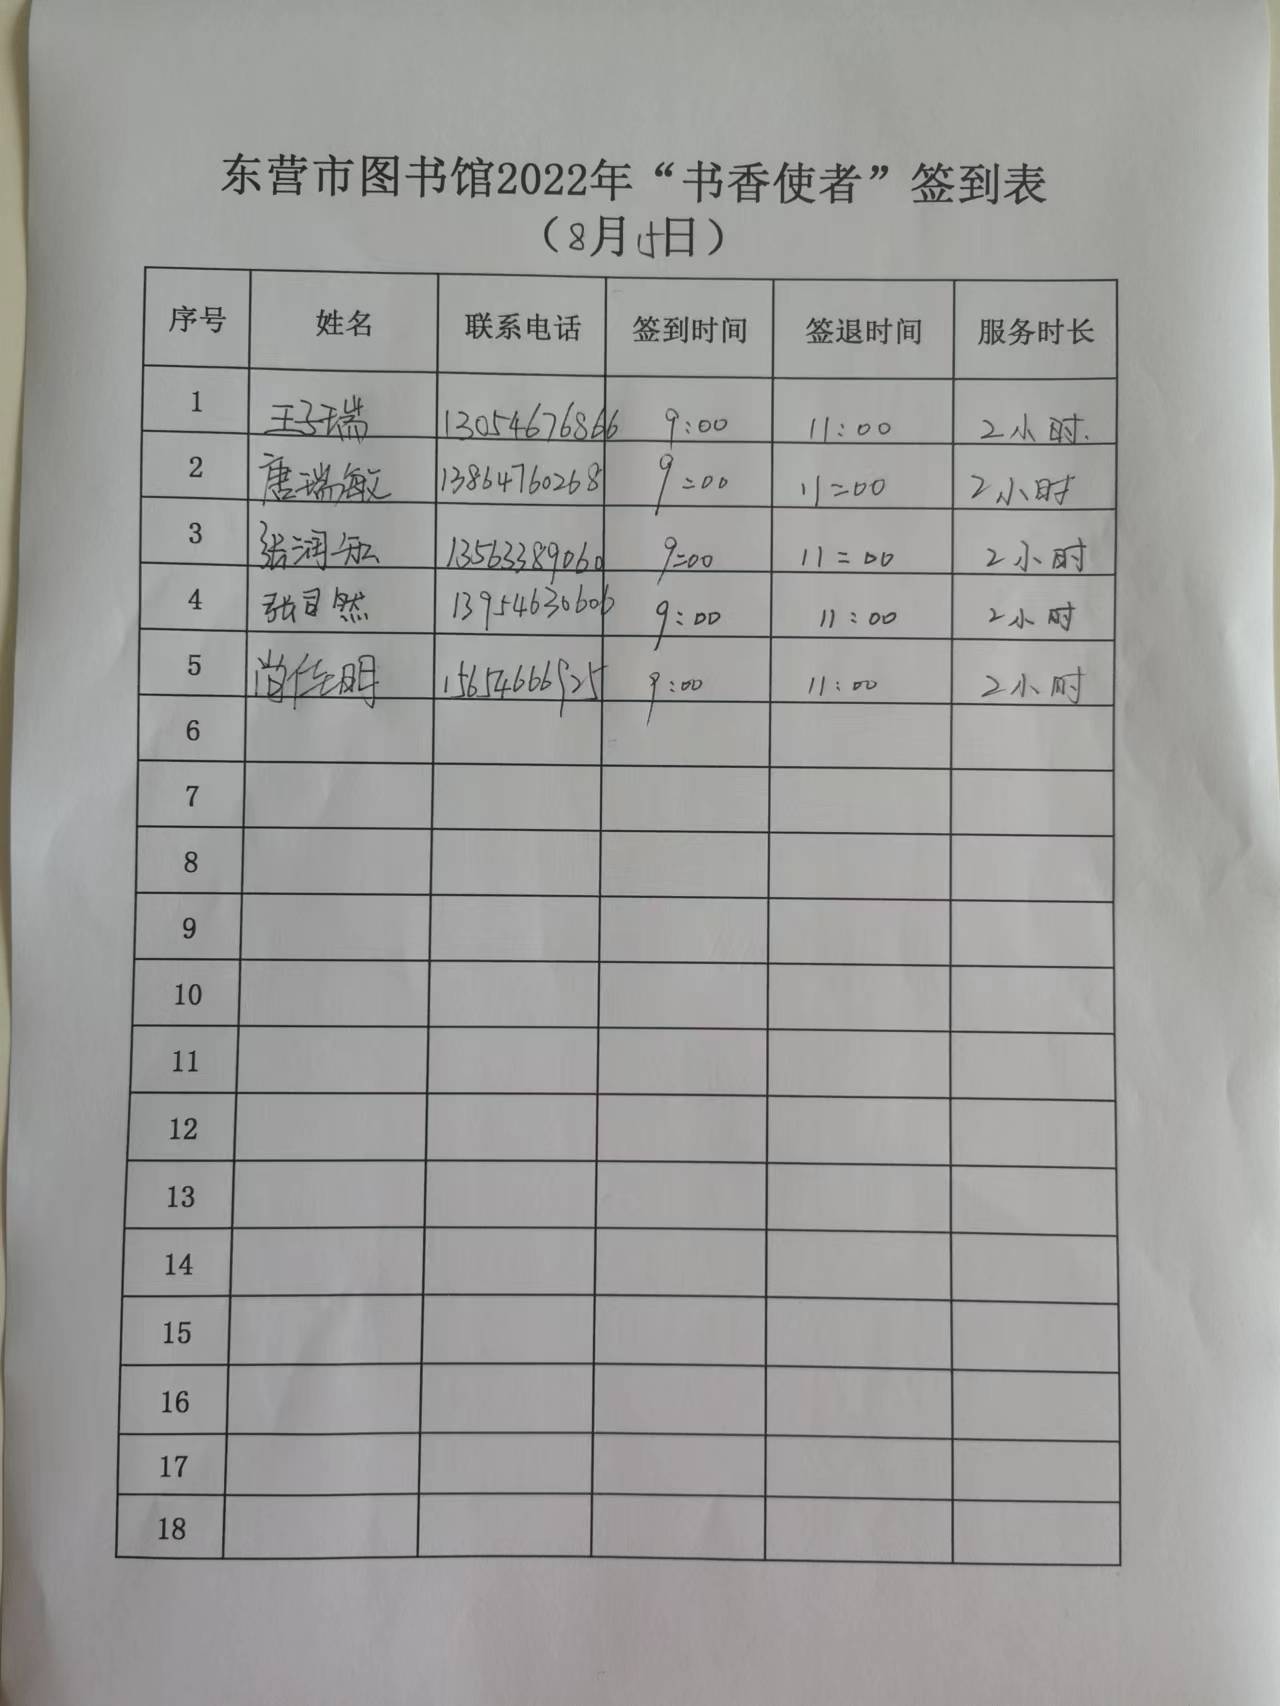 东营市图书馆2022年“书香使者”签到表
（8月15日）
序号 姓名 联系电话 签到时间 签退时间 服务时长
1 王子瑞 13054676866 9:00 11:00 2小时.
2 唐瑞敏 13864760268 9:00 11:00 2小时
3 张润知 13563389060 9:00 11:00 2小时
4 张自然 13954630606 9:00 11:00 2小时
5 尚佳明 15654666925 9:00 11:00 2小时
6
7
8
9
10
11
12
13
14
15
16
17
18